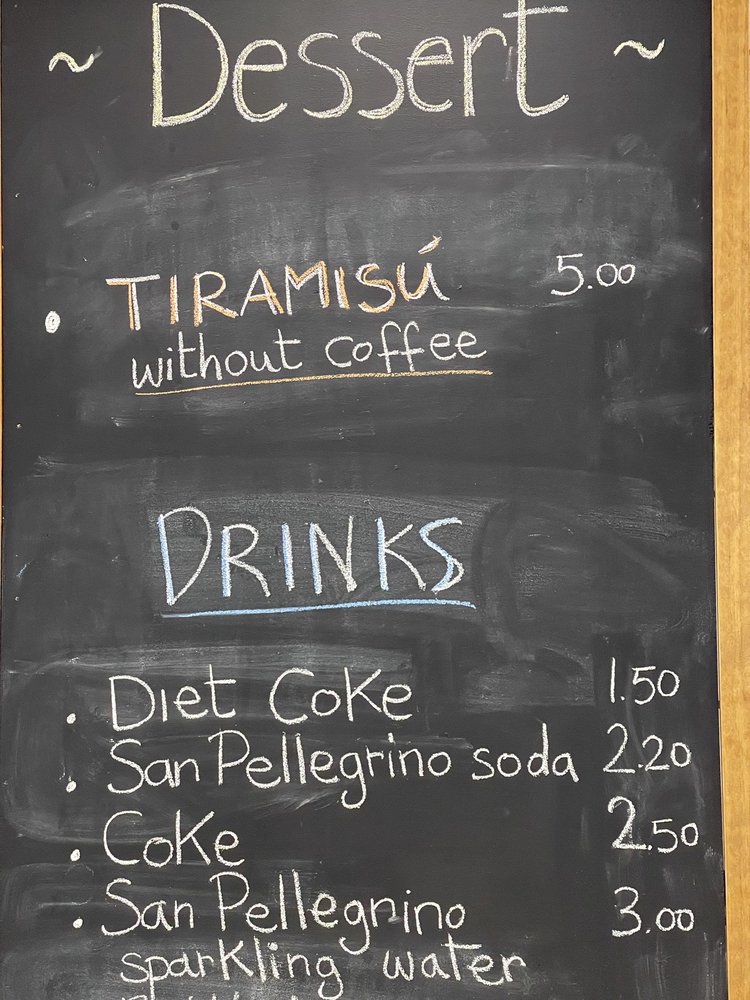 ~ Dessert ~
• TIRAMISÚ 5.00
without coffee
DRINKS
• Diet Coke 1.50
• San Pellegrino soda 2.20
• Coke 2.50
• San Pellegrino 3.00
sparkling water